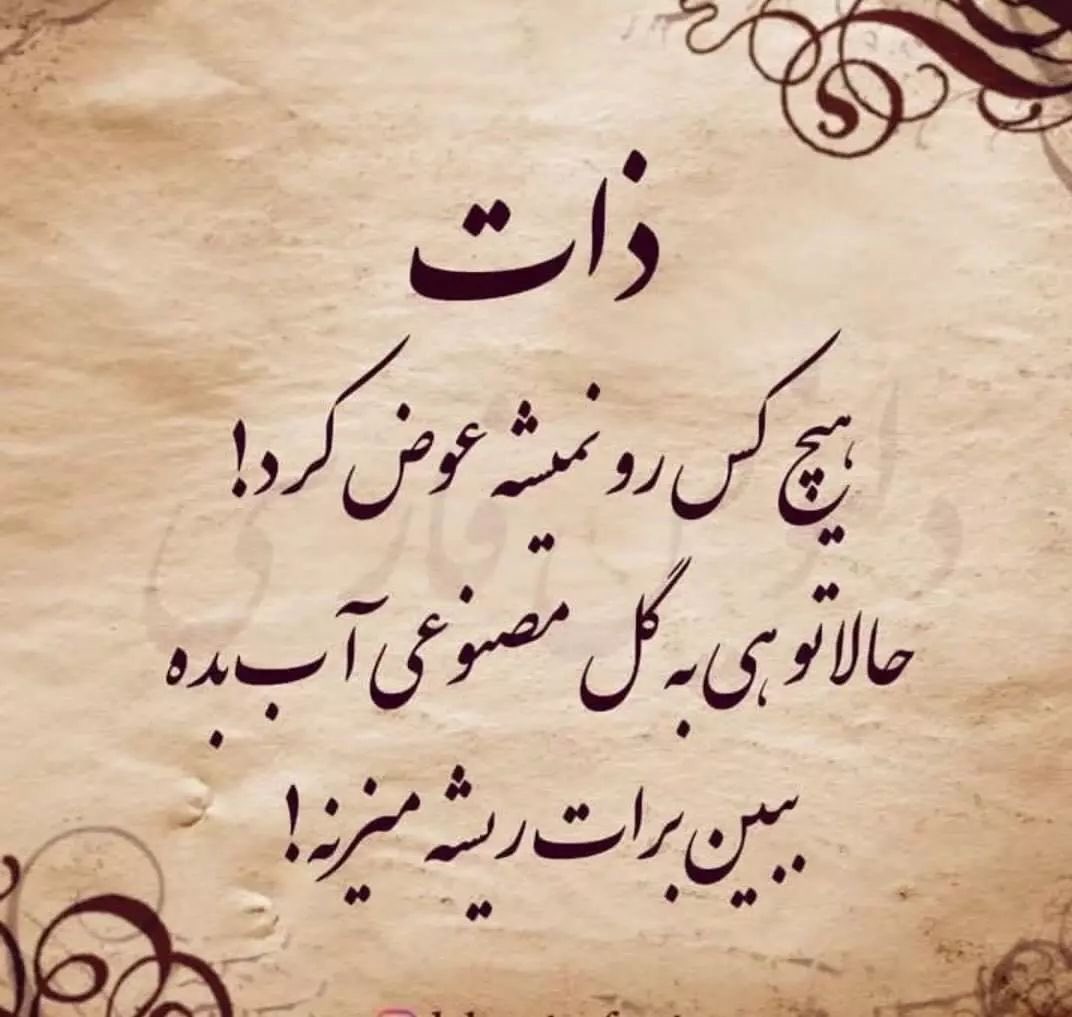 ذات
هیچ کس رو نمیشه عوض کرد!
حالا تو هی به گل مصنوعی آب بده
ببین برات ریشه میزنه!